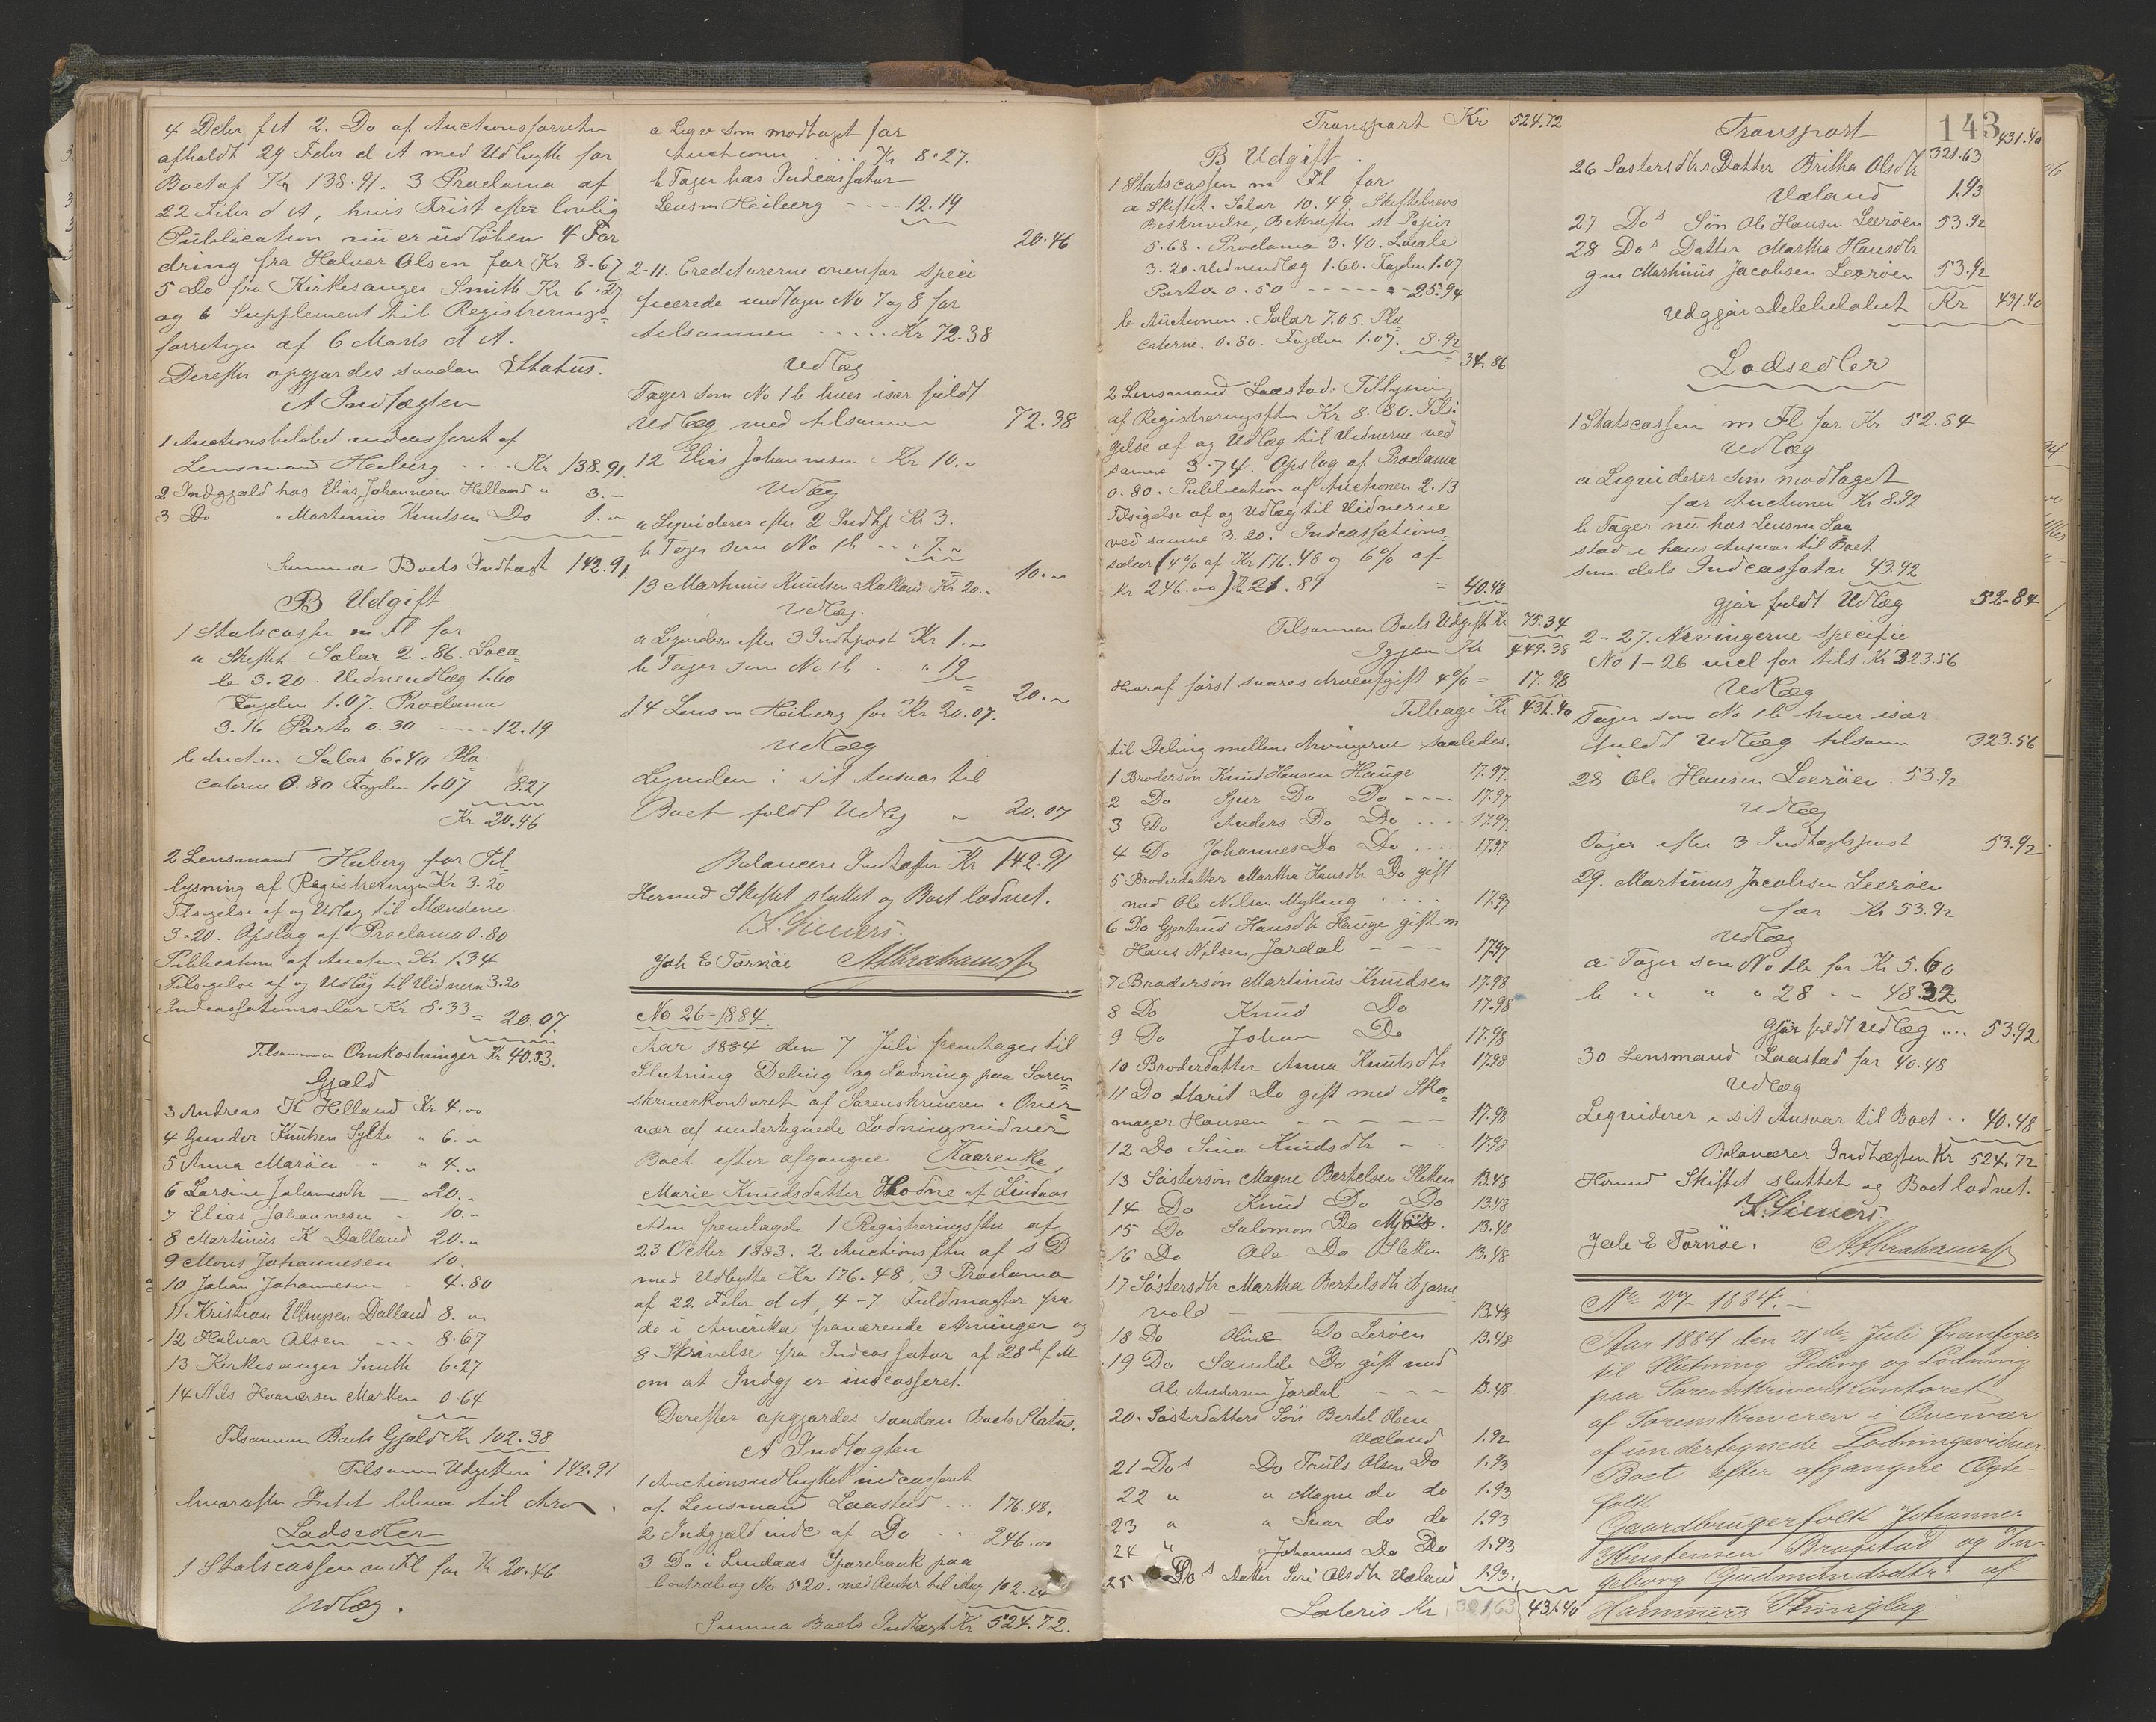 4 Debr f A 2. Do af Auctionsforretn
afholdt 29 Febr d A med Udbytte for
Boet af Kr 138.91. 3 Proclama af
22 Febr d A, hvis Frist efter lovlig
Publication nu er udløben 4 For
dring fra Halvor Olsen for Kr 8.67
5 Do fra Kirkesanger Smith Kr 6.27
og 6 Supplement til Registrerings=
forretngn af 6 Marts d A.
Derefter opgjordes saadan Status.
A Indtægten
1 Auctionsbeløbet indcasseret af
Lensmand Heiberg .... Kr 138.91.
2 Indgjæld hos Elias Johannesen Helland " 3.–
3 Do " Martinus Knutsen Do 1.–
Summa Boets Indtægt 142.91.
B Udgift.
1 Statscassen m Fl for
a Skiftet. Salar 2.86. Loca=
le 3.20. Vidneudlæg 1.60
Fogden 1.07. Proclama
3.16 Porto 0.30 ---- 12.19
b Auction Salar 6.40 Pla
caterne 0.80 Fogden 1.07 8.27
Kr 20.46
2 Lensmand Heiberg for Til
lysning af Registreringen Kr 3.20
Tilsigelse af og Udlæg til Mændene
3.20. Opslag af Proclama 0.80
Publication af Auction Kr 1.34
Tilsigelse af og Udlæg til Vidnern 3.20
Indcassationssalar Kr 8.33 = 20.07.
Tilsammen Omkostninger Kr 40.53.
Gjæld
3 Andreas K Helland Kr 4.00
4 Gunder Knutsen Sylte " 6.–
5 Anna Marøen " " 4.–
6 Larsine Johannesdtr — 20..
7 Elias Johannesen – 10.–
8 Martinus K Dalland 20.–
9 Mons Johannesen 10.
10 Johan Johannesen 4.80
11 Kristian Dalland 8.–
12 Halvor Olsen --- 8.67
13 Kirkesanger Smith 6.27
14 Nils Marken 0.64
Tilsammen Boets Gjæld Kr 102.38
Tilsamm Udgiften 142.91
hvorefter Intet bliver til Arv.
Lodsedler
1 Statscassen m Fl for Kr 20.46
Udlæg.
a Liqv som modtaget for
Auctionen ... Kr 8.27.
b Tager hos Indcassator
Lensm Heiberg --- 12.19
20.46
2-11. Creditorerne ovenfor speci
ficerede undtagen No 7 og 8 for
tilsammen ..... Kr 72.38
Udlæg
Tager som No 1 b hver især fuldt
Udlæg med tilsammen 72.38
12 Elias Johannesen Kr 10.–
Udlæg
a Liqviderer efter 2 Indtp Kr 3.
b Tager som No 1 b .. " 7.–
10.–
13 Martinus Knutsen Dalland Kr 20..
Udlæg.
a Liqviderer efter 3 Indtpost Kr 1.–
b Tager som No 1 b – " 19
20.–
14 Lensm Heiberg for Kr 20.07.
Udlæg
Liqviderer i sit Ansvar til
Boet fuldt Udlæg – 20.07
Balancerer Indtægten Kr 142.91
Hermed Skiftet sluttet og Boet lodnet.
S. Sievers.
Joh E Tornøe A Abrahamsen
No 26-1884.
Aar 1884 den 7 Juli fremtages til
Slutning Deling og Lodning paa Soren=
skriverkontoret af Sorenskriveren i Over=
vær af undertegnede Lodningsvidner
Boet efter afgangne Kaarenke
Marie Knudsdatter Hodne af Lindaas
Adm fremlagde 1 Registreringsftn af
23 Octbr 1883. 2 Auctionsftn af s D
med Udbytte Kr 176.48, 3 Proclama
af 22 Febr d A, 4-7 Fuldmagter fra
de i Amerika fraværende Arvinger og
8 Skrivelse fra Indcassator af 28de f M
om at Indgj er indcasseret.
Derefter opgjordes saadan Boets Status.
A Indtægten
1 Auctionsudbyttet indcasseret
af Lensmand Laastad .. 176.48.
2 Indgjæld indc af Do ... 246.00
3 Do i Lindaas Sparebank paa
Contrabog No 520. med Renter til idag 102.24
Summa Boets Indtægt Kr 524.72.
Transport Kr 524.72
B Udgift.
1 Statscassen m Fl for
a Skiftet. Salar 10.49. Skiftebrevs
Beskrivelse, Bekræftn st Papir
5.68. Proclama 3.40. Locale
3.20. Vidneudlæg 1.60. Fogden 1.07
Porto 0.50 ----- 25.94
b Auctionen. Salar 7.05. Pla
caterne. 0.80. Fogden 1.07. 8.92
= 34.86
2 Lensmand Laastad. Tillysning
af Registreringsftn Kr 8.80. Tilsi
gelse af og Udlæg til Vidnerne ved
samme 3.74. Opslag af Proclama
0.80. Publication af Auctionen 2.13
Tilsigelse af og Udlæg til Vidnerne
ved samme 3.20. Indcassations=
salar (4% af Kr 176.48 og 6% af
Kr 246.00) Kr 21.81 = 40.48
Tilsammen Boets Udgift Kr 75.34
Igjen Kr 449.38
Hvoraf først svares Arveafgift 4% = 17.98
Tilbage Kr 431.40
til Deling mellem Arvingerne saaledes.
1 Brodersøn Knud Hansen Hauge 17.97.
2 Do Sjur Do Do ---- 17.97
3 Do Anders Do Do .... 17.97.
4 Do Johannes Do Do .... 17.97
5 Broderdatter Martha Hansdtr Do gift
med Ole Nilsen Myking .... 17.97
6 Do Gjertrud Hansdtr Hauge gift m
Hans Nilsen Jordal --- 17.97
7 Brodersøn Martinus Knudsen 17.98
8 Do Knud Do 17.98
9 Do Johan Do 17.98
10 Broderdatter Anna Knutsdtr 17.98
11 Do Marit Do gift med Sko=
mager Hansen ----- 17.98
12 Do Sina Knudsdtr – 17.98
13 Søstersøn Magne Bertelsen Sletten 13.48
14 Do Knud Do Do 13.48
15 Do Salomon Do Mjøs. 13.48
16 Do Ole Do Sletten 13.48
17 Søstersdtr Martha Bertelsdtr Bjørne=
vold 13.48
18 Do Oline Do Lerøen 13.48
19 Do Do gift med
Ole Andersen Jordal --- 13.48
20. Søsterdatters Søn Bertel Olsen
Væland 1.92
21 Dos Do Truls Olsen Do 1.93
22 " " Magne do do 1.93
23 " " Ivar do do 1.93
24 " " Johannes Do Do 1.93
25 Dos Datter Siri Olsdtr Væland 1.93.
Lateris Kr 321.63 431.40
Transport 143 431.40
321.63
26 SøstersdtrsDatter Britha Olsdtr
Væland 1.93
27 Dos Søn Ole Hansen Leerøen 53.92
28 Dos Datter Martha Hansdtr
gm Martinus Jacobsen Leerøen 53.92
Udgjør Delebeløbet Kr 431.40
Lodsedler
1 Statscassen m Fl for Kr 52.84
Udlæg
a Liqviderer som modtaget
for Auctionen Kr 8.92
b Tager nu hos Lensm Laa
stad i hans Ansvar til Boet
som dels Indcassator 43.92
gjør fuldt Udlæg 52.84
2-27. Arvingerne specific
No 1-26 incl for tils Kr 323.56
Udlæg
Tager som No 1 b hver især
fuldt Udlæg tilsamm 323.56
28 Ole Hansen Leerøen. 53.92
Udlæg
Tager efter 3 Indtægtspost 53.92
29. Martinus Jacobsen Leerøen
for Kr 53.92
Udlæg
a Tager som No 1 b for Kr 5.60
b " " " 28 .. 48.32
Gjør fuldt Udlæg .... 53.92
30 Lensmand Laastad for 40.48
Udlæg
Liqviderer i sit Ansvar til Boet .. 40.48
Balancerer Indtægten Kr 524.72
Hermed Skiftet sluttet og Boet lodnet.
S. Sievers.
Joh E Tornøe. A Abrahamsen
No 27-1884.–
Aar 1884 den 21de Juli foretoges
til Slutning Deling og Lodning
paa Sorenskriverkontoret
af Sorenskriveren i Overvær
af undertegnede Lodningsvidner
Boet efter afgangne Ægte-
folk
Gaardbrugerfolk Johannes
Kristensen Bragstad og In-
geborg Gudmundsdtr af
Hammers Thinglag.